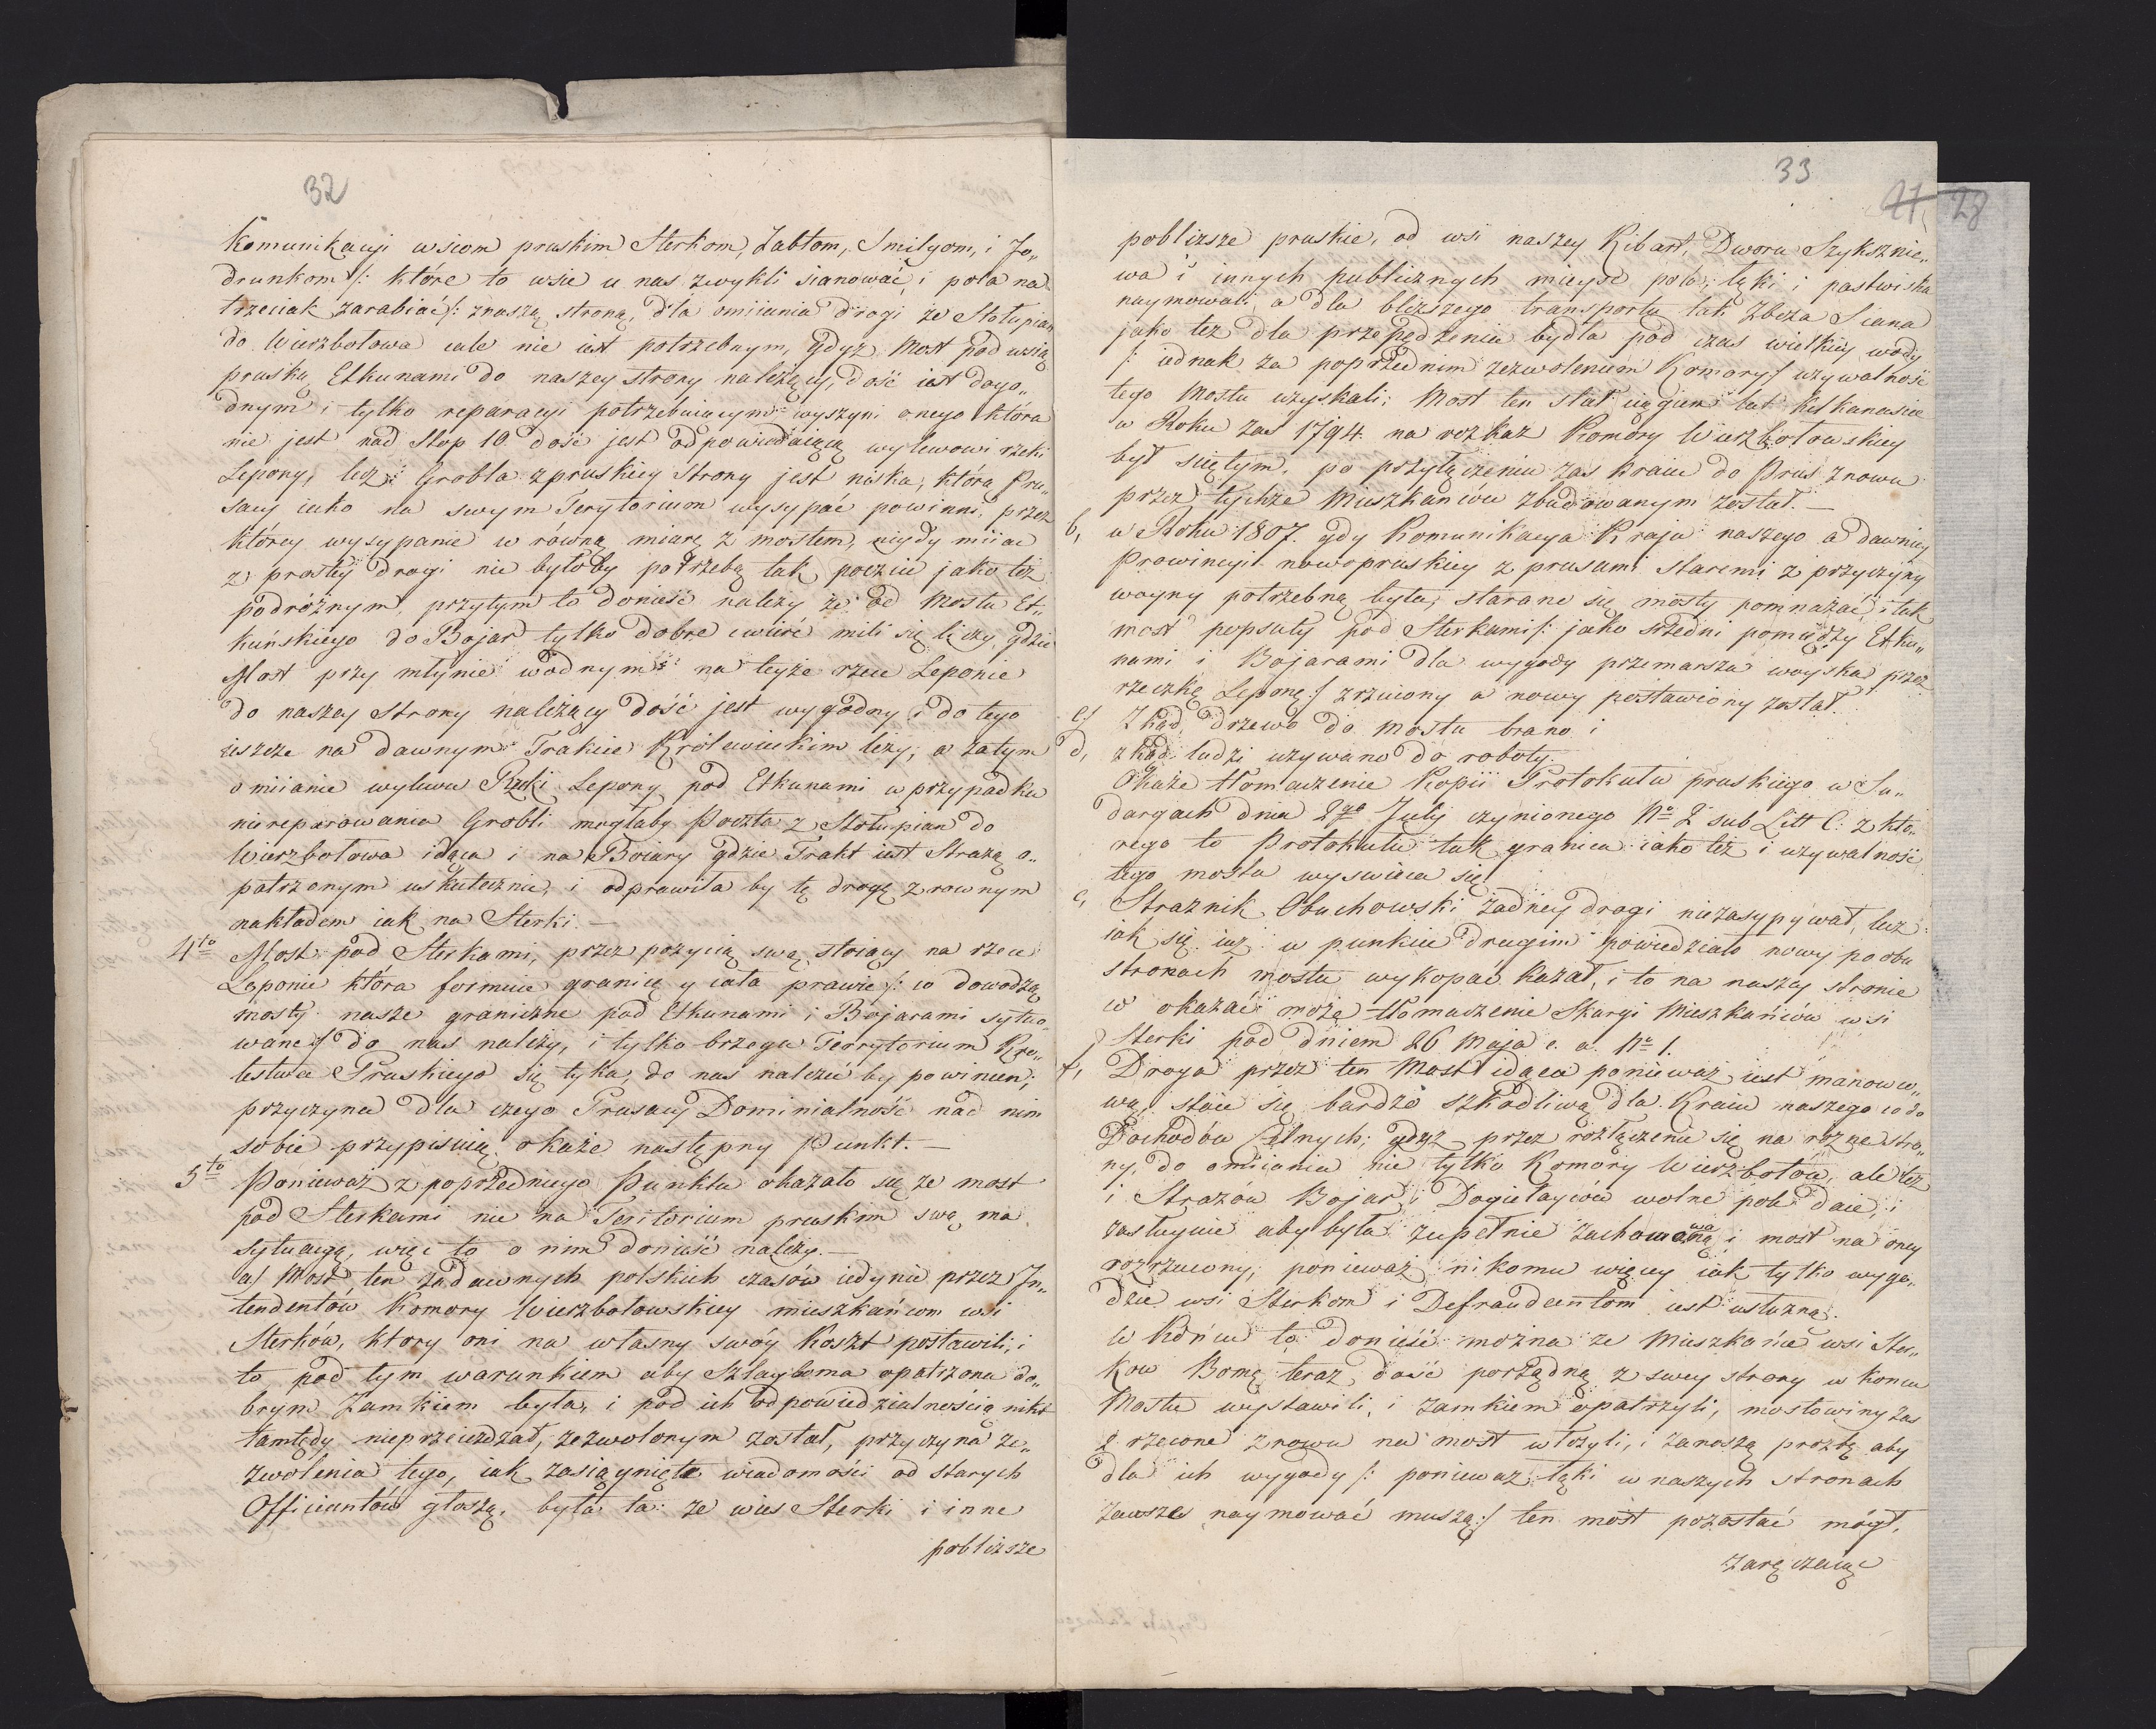 32
Komunikacyi wsiom pruskim Sterkom, Żabłom, Smilgom, i Jo„
drunkom /: które to wsie u nas zwykli sianować, i pola na
trzeciak zarabiać :/ znaszą stroną, dla omiiania drogi ze Stołupian
do Wierzbołowa cale nie iest potrzebnym, gdyż Most pod wsią
pruską Etkunami do naszey strony należący, dość iest dogo„
dnym i tylko reparacyi potrzebuiącym wyszyni onego która
nie jest nad Stop 10. dość jest odpowiedaiącą wylewowi rzeki
Lepony, lecz Grobla z pruskiey Strony jest niska, którą Pru„
sacy iako na swym Terytorium wysypać powinni, przez
którey wysypanie w równą miarę z mostem, nigdy miiać
z prostey drogi nie byłoby potrzebą tak poczcie jako też
podróżnym, przytym to donieść należy że od Mostu Et„
kuńskiego do Bojar tylko dobre ćwierć mili się liczy, gdzie
Most przy młynie wodnym na teyże rzece Leponie
do naszey strony należący dość jest wygodny i do tego
ieszcze na dawnym Trakcie Królewieckim leży, a zatym
omiianie wylewu Rzeki Lepony pod Etkunami w przypadku
niereparowania Grobli mogłaby Poczta z Stołupian do
Wierzbołowa idąca i na Boiary gdzie Trakt iest Strażą o„
patrzonym uskutecznić, i odprawiła by tę drogę z rownym
nakładem iak na Sterki. —
4to Most pod Sterkami, przez pozycią swą stoiący na rzece
Leponie która formuie granicę y cała prawie /: co dowodzą
mosty nasze graniczne pod Etkunami i Bojarami sytuo„
wane :/ do nas należy, i tylko brzegu Terrytorium Kró„
lestwa Pruskiego się tyka, do nas należeć by powinien;
przyczyna dla czego Prusacy Dominialność nad nim
sobie przypisuią okaże następny Punkt. —
5to Ponieważ z poprzedniego Punktu okazało się ze most
pod Sterkami nie na Teritorium pruskim swą ma
sytuacyą, więc to o nim donieść należy. —
a/ Most ten za dawnych polskich czasów iedynie przez In„
tendentów Komory Wierzbołowskiey mieszkańcom wsi
Sterków, ktory oni na własny swóy Koszt postawili, i
to pod tym warunkiem aby Szlayboma opatrzona do„
brym Zamkiem była, i pod ich odpowiedzialnością nikt
tamtędy nieprzeieżdżał, zezwolonym został, przyczyna ze„
zwolenia tego, iak zasiągnięte wiadomości od starych
Officiantów głoszą, była ta: że wies Sterki i inne
poblizsze
33
27 28
poblizsze pruskie, od wsi naszey Kibart, Dworu Szyksznie„
wa i innych publicznych mieysc pola, łąki i pastwiska
naymowali, a dla bliższego transportu tak Zboża Siana
jako też dla przepędzenia bydła pod czas wielkiey wody
/: iednak za poprzednim zezwoleniem Komory :/ używalność
tego Mostu uzyskali; Most ten stał ciągiem lat kilkanaście
w Roku zaś 1794. na rozkaz Komory Wierzbołowskiey
był sciętym, po przyłączeniu zaś kraiu do Prus znowu
przez tychże Mieszkańców zbudowanym został. —
b, w Roku 1807. gdy Komunikacya Kraju naszego a dawniey
Prowincyi nowopruskiey z prusami staremi z przyczyny
woyny potrzebną była, starano się mosty pomnażać, i tak
most popsuty pod Sterkami /: jako srzedni pomiędzy Etku„
nami i Bojarami dla wygody przemarszu woyska przez
rzeczkę Leponę :/ zrzucony a nowy postawiony został.
c/ Zkąd drzewo do mostu brano i
d, zkąd ludzi używano do roboty.
Okaże tłomaczenie Kopii Protokułu pruskiego w Su„
dargach dnia 2go July czynionego No 2 sub Litt C: z któ„
rego to Protokułu tak granica iako też i używalność
tego mostu wyswieca się.
e, Strażnik Obuchowski żadney drogi niezasypywał, lecz
iak się iuż w punkcie drugim powiedziało nowy po obu
stronach mostu wykopać kazał, i to na naszey stronie
co okazać może tłomaczenie Skargi Mieszkańców wsi
Sterki pod dniem 26 Maja e. a. No 1.
f, Droga przez ten Most idąca ponieważ iest manow„
wą, staie się bardzo szkodliwą dla Kraiu naszego co do
Dochodów Celnych; gdyż przez rozłączenie się na rożne stro„
ny, do omiiania nie tylko Komory Wierzbołow, ale też
i Strażów Bojar i Dogielayców wolne pole daie, i
zasługuie aby była zupełnie zachowaną i most na oney
rozrzucony, ponieważ nikomu więcey iak tylko wygo„
dzie wsi Sterkom i Defraudantom iest usłużną.
W Końcu to donieść można ze Mieszkańce wsi Ster„
kow Bomę teraz dość porządną z swey strony w koncu
Mostu wystawili, i zamkiem opatrzyli, mostowiny zaś
zrzucone znowu na most włożyli, i zanoszą prozbę aby
dla ich wygody /: ponieważ łąki w naszych stronach
zawsze naymować muszą :/ ten most pozostać mógł,
Zaręczaiąc